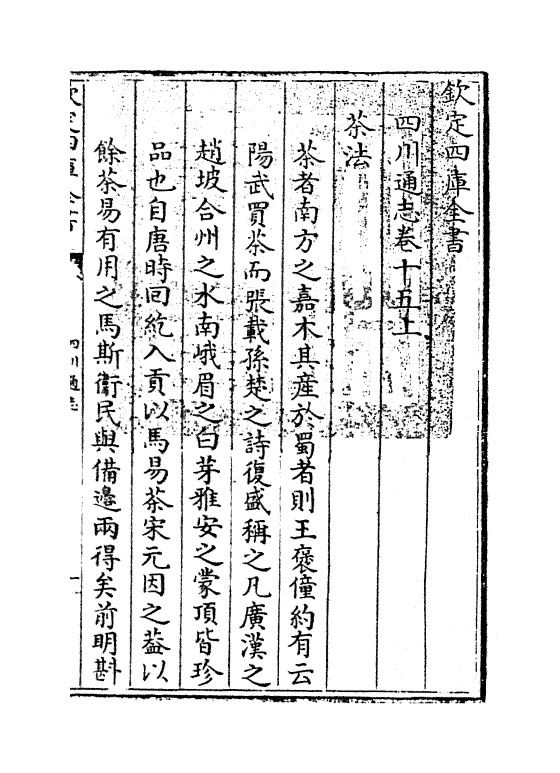 欽定四庫全書
四川通志卷十五上
茶法
茶者南方之嘉木其産於蜀者則王襃僮約有云
陽武買茶而張載孫楚之詩復盛稱之凡廣漢之
趙坡合州之水南峨眉之白芽雅安之蒙頂皆珍
品也自唐時回紇入貢以馬易茶宋元因之葢以
餘茶易有用之馬斯衛民與備邊兩得矣前明斟
欽定四庫全書
四川通志
一